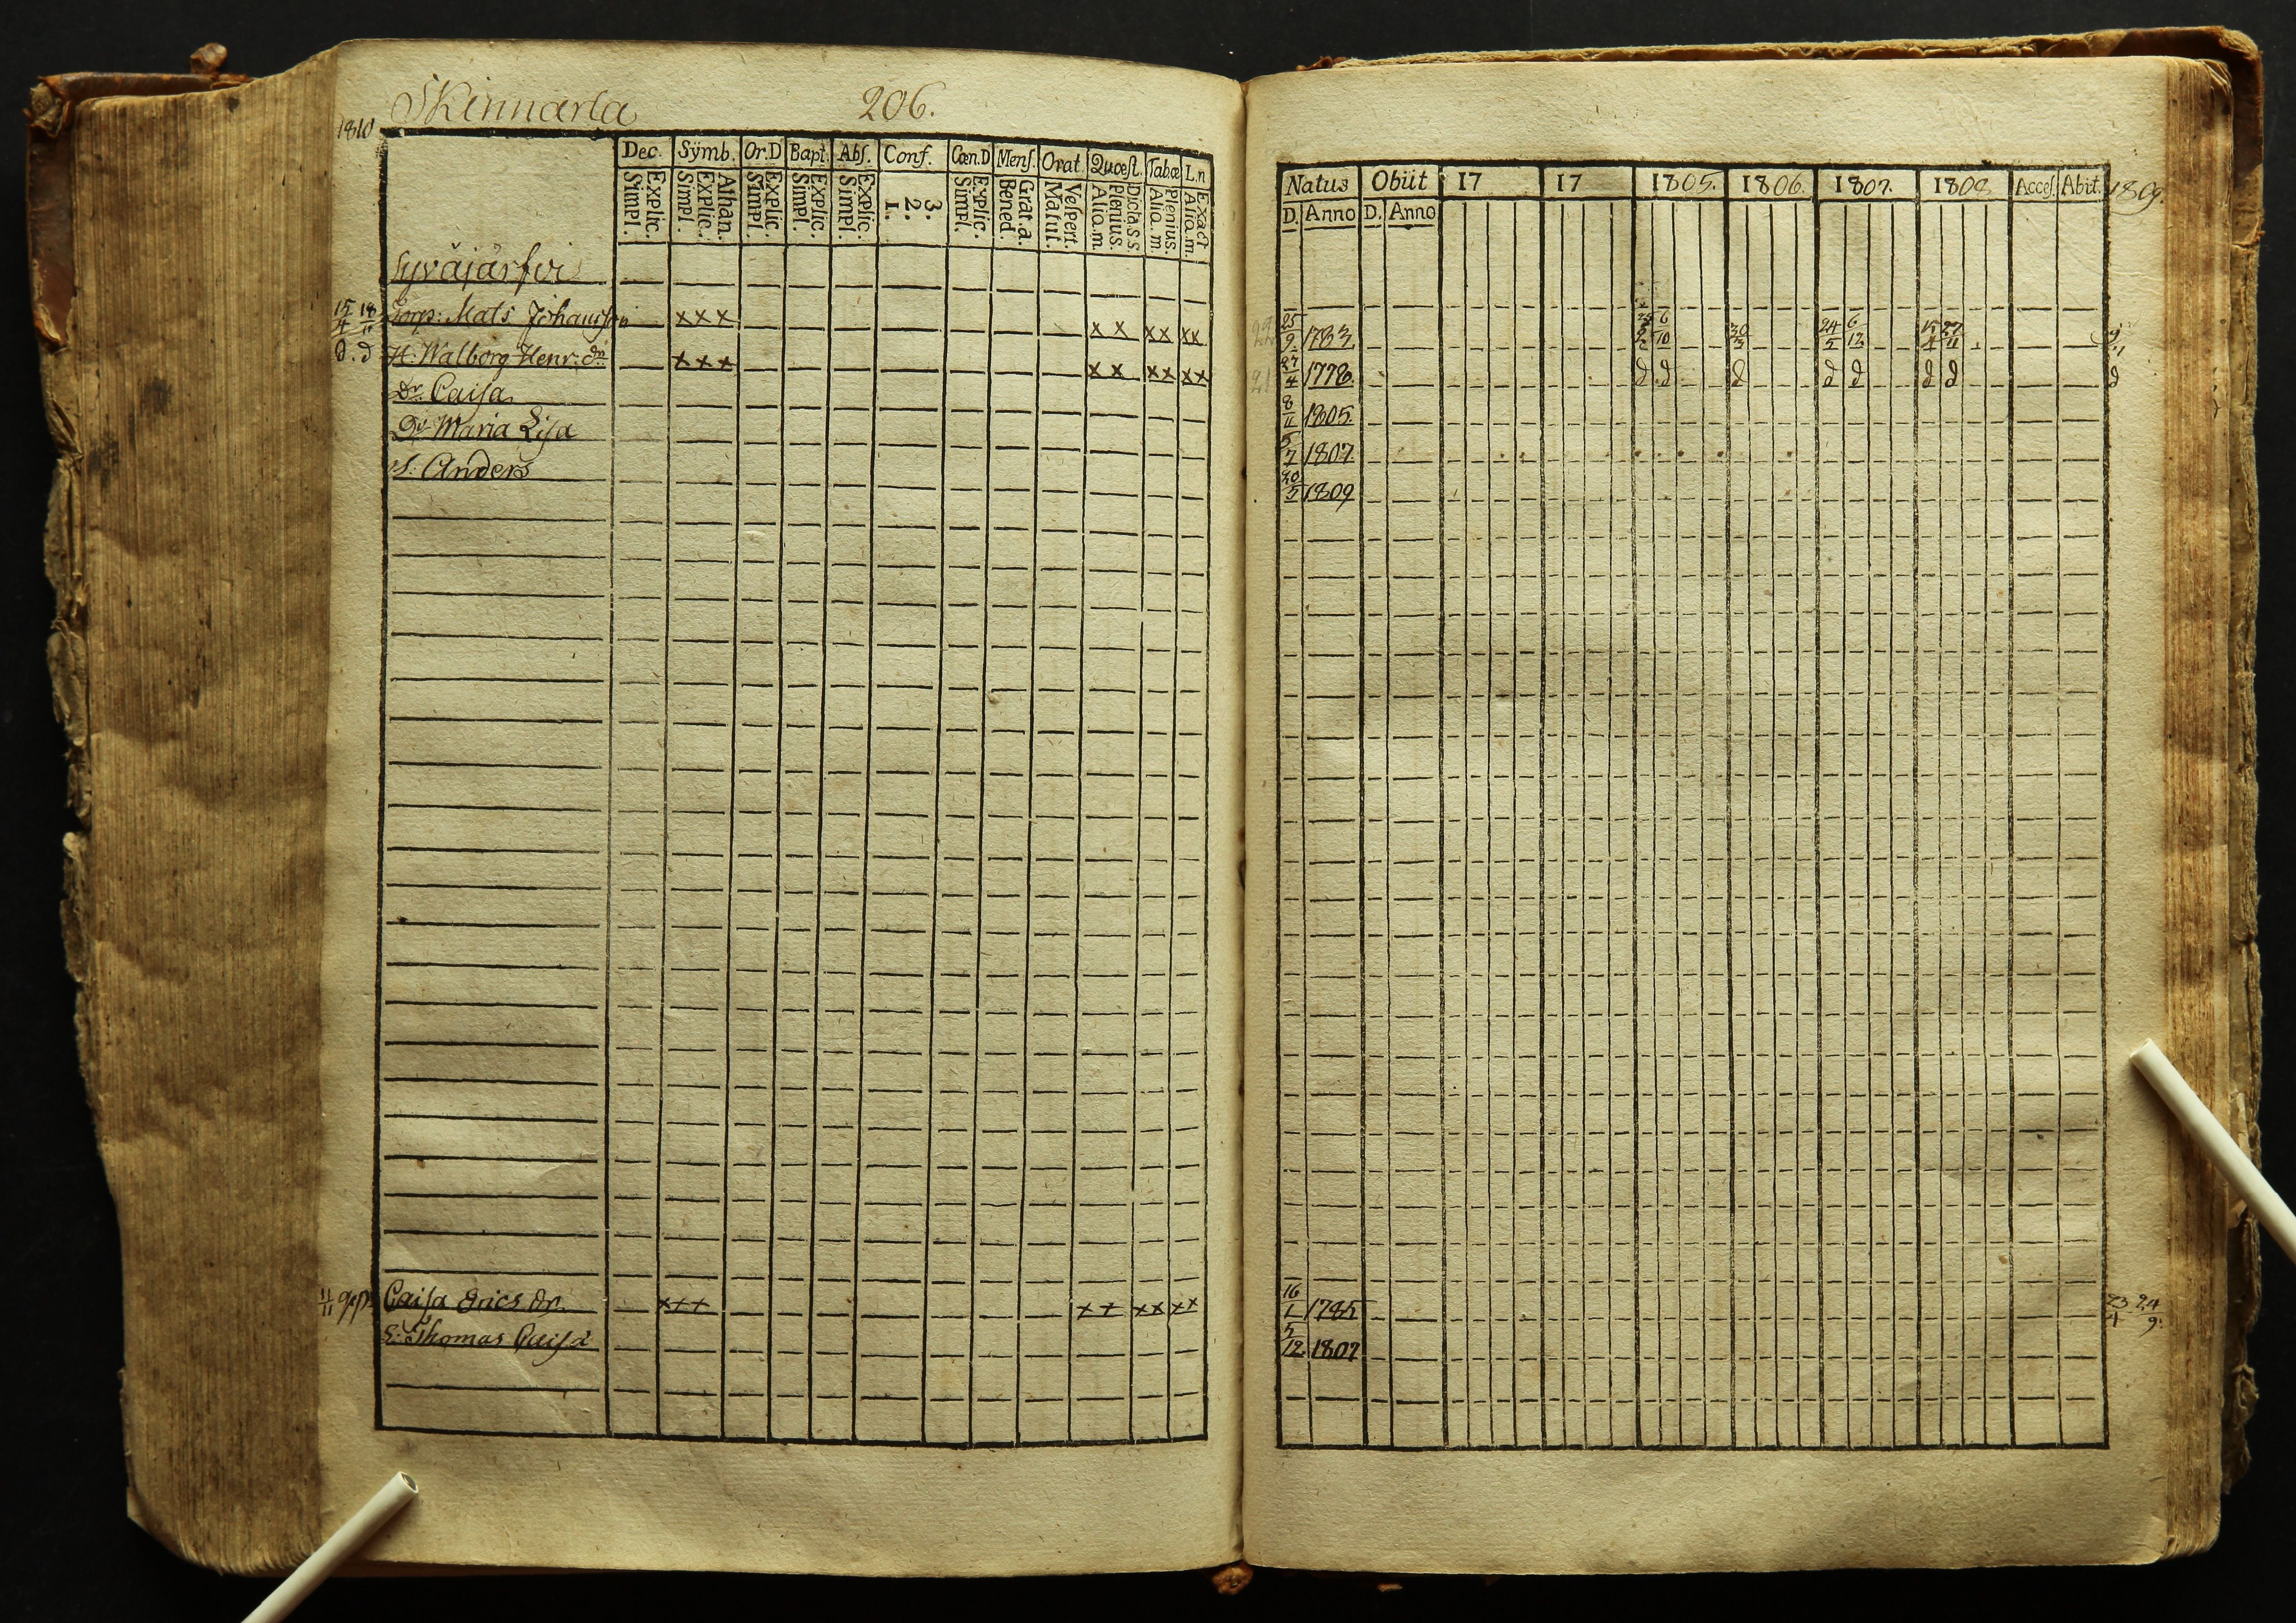 Skinnarla 206.
1810
Dec. Sÿmb. Or.D Bapt. Abſ. Conf. Cœn.D Menſ. Orat. Quœſt. Tabœ L.n
Simpl. Explic. Simpl. Explic. Athan. Simpl. Explic. Simpl. Explic. Simpl. Explic. 1. 2. 3. Simpl. Explic. Bened. Grat.a. Matut. Veſpert. Alia.m. Plenius. Dicta.s.s. Alia.m. Plenius. Alia.m. Exact
Syväjärfvi
15/4 18/11 Torp: Mats Johansson x x x x x x x x x
d. d H: Walborg Henr: dr x x x x x x x x x
Dr. Caisa
Dr Maria Lisa
S. Anders
11/11 Caisa Erics dr. x x x x x x x x x
Thomas Caisa
Natus Obiit 17 17 1805. 1806. 1807. 1808 Acceſ. Abit. 1809.
D. Anno D. Anno
25/9 1783. 6/10 30/3 24/5 6/12 15/4 27/11
27/4 1778. d. d d d d d d d
8/11 1805.
5/7 1807
20/5 1809
16/1 1785 23/4 24/9
5/12 1807